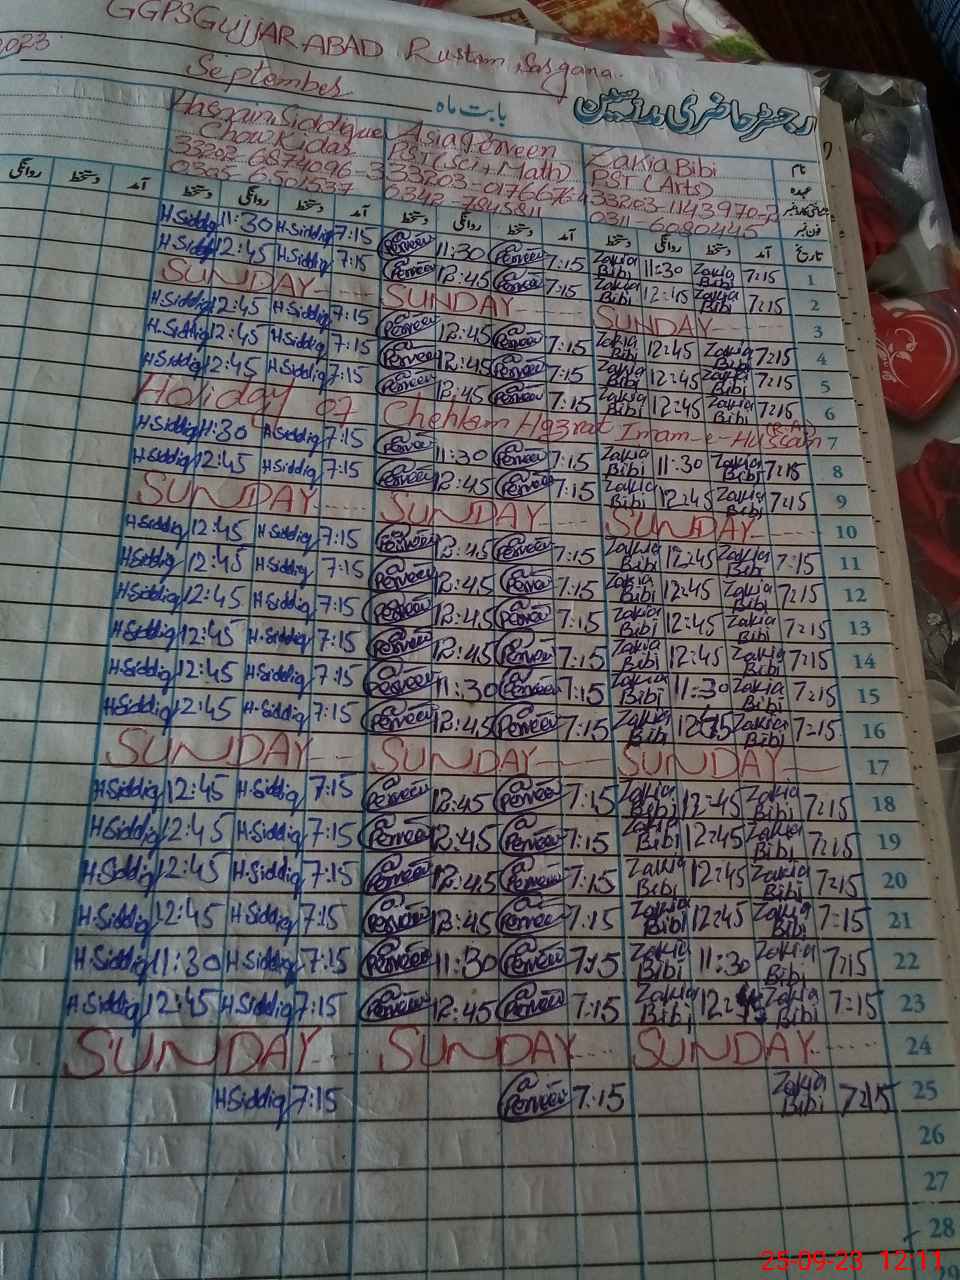 GGPS Gujjar ABAD Rustam Sargana.
2023
September بابت ماہ رجسٹر حاضری مدرسین
Hasnain Siddique Asia Perveen Zakia Bibi نام
Chowkidar PST (Sci + Math) PST (Arts) عہدہ
فون نمبر
روانگی دستخط آمد دستخط روانگی دستخط آمد دستخط روانگی دستخط آمد دستخط روانگی دستخط آمد تاریخ
H.Siddiq 11:30 H.Siddiq 7:15 Perveen 11:30 Perveen 7:15 Zakia Bibi 11:30 Zakia Bibi 7:15 1
H.Siddiq 12:45 H.Siddiq 7:15 Perveen 12:45 Perveen 7:15 Zakia Bibi 12:45 Zakia Bibi 7:15 2
SUNDAY SUNDAY SUNDAY 3
H.Siddiq 12:45 H.Siddiq 7:15 Perveen 12:45 Perveen 7:15 Zakia Bibi 12:45 Zakia Bibi 7:15 4
H.Siddiq 12:45 H.Siddiq 7:15 Perveen 12:45 Perveen 7:15 Zakia Bibi 12:45 Zakia Bibi 7:15 5
H.Siddiq 12:45 H.Siddiq 7:15 Perveen 12:45 Perveen 7:15 Zakia Bibi 12:45 Zakia Bibi 7:15 6
Holiday of Chehlam Hazrat Imam-e-Hussain (R.A) 7
H.Siddiq 11:30 H.Siddiq 7:15 Perveen 11:30 Perveen 7:15 Zakia Bibi 11:30 Zakia Bibi 7:15 8
H.Siddiq 12:45 H.Siddiq 7:15 Perveen 12:45 Perveen 7:15 Zakia Bibi 12:45 Zakia Bibi 7:15 9
SUNDAY SUNDAY SUNDAY 10
H.Siddiq 12:45 H.Siddiq 7:15 Perveen 12:45 Perveen 7:15 Zakia Bibi 12:45 Zakia Bibi 7:15 11
H.Siddiq 12:45 H.Siddiq 7:15 Perveen 12:45 Perveen 7:15 Zakia Bibi 12:45 Zakia Bibi 7:15 12
H.Siddiq 12:45 H.Siddiq 7:15 Perveen 12:45 Perveen 7:15 Zakia Bibi 12:45 Zakia Bibi 7:15 13
H.Siddiq 12:45 H.Siddiq 7:15 Perveen 12:45 Perveen 7:15 Zakia Bibi 12:45 Zakia Bibi 7:15 14
H.Siddiq 12:45 H.Siddiq 7:15 Perveen 11:30 Perveen 7:15 Zakia Bibi 11:30 Zakia Bibi 7:15 15
H.Siddiq 12:45 H.Siddiq 7:15 Perveen 12:45 Perveen 7:15 Zakia Bibi 12:45 Zakia Bibi 7:15 16
SUNDAY SUNDAY SUNDAY 17
H.Siddiq 12:45 H.Siddiq 7:15 Perveen 12:45 Perveen 7:15 Zakia Bibi 12:45 Zakia Bibi 7:15 18
H.Siddiq 12:45 H.Siddiq 7:15 Perveen 12:45 Perveen 7:15 Zakia Bibi 12:45 Zakia Bibi 7:15 19
H.Siddiq 12:45 H.Siddiq 7:15 Perveen 12:45 Perveen 7:15 Zakia Bibi 12:45 Zakia Bibi 7:15 20
H.Siddiq 12:45 H.Siddiq 7:15 Perveen 12:45 Perveen 7:15 Zakia Bibi 12:45 Zakia Bibi 7:15 21
H.Siddiq 11:30 H.Siddiq 7:15 Perveen 11:30 Perveen 7:15 Zakia Bibi 11:30 Zakia Bibi 7:15 22
H.Siddiq 12:45 H.Siddiq 7:15 Perveen 12:45 Perveen 7:15 Zakia Bibi 12:45 Zakia Bibi 7:15 23
SUNDAY SUNDAY SUNDAY 24
H.Siddiq 7:15 Perveen 7:15 Zakia Bibi 7:15 25
26
27
28
29
25-09-23 12:11